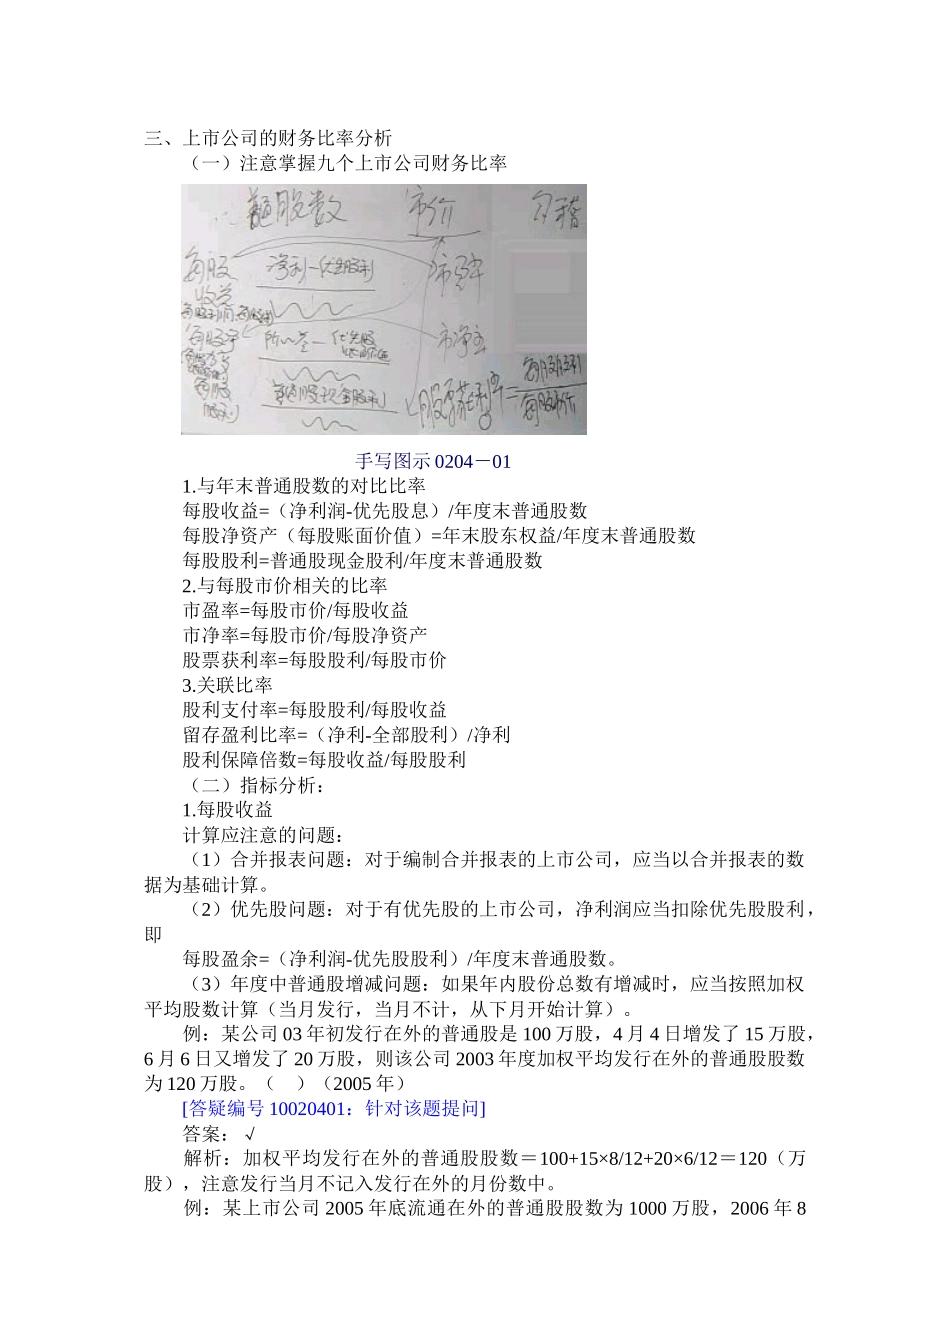 三、上市公司的财务比率分析
（一）注意掌握九个上市公司财务比率
普通股数 市价 勾稽
每股收益 净利－优先股利 市盈率
每股净
市净率
普通股现金股利
每股股利
股票获利率＝每股股利/每股市价
手写图示 0204－01
1.与年末普通股数的对比比率
每股收益=（净利润-优先股息）/年度末普通股数
每股净资产（每股账面价值）=年末股东权益/年度末普通股数
每股股利=普通股现金股利/年度末普通股数
2.与每股市价相关的比率
市盈率=每股市价/每股收益
市净率=每股市价/每股净资产
股票获利率=每股股利/每股市价
3.关联比率
股利支付率=每股股利/每股收益
留存盈利比率=（净利-全部股利）/净利
股利保障倍数=每股收益/每股股利
（二）指标分析：
1.每股收益
计算应注意的问题：
（1）合并报表问题：对于编制合并报表的上市公司，应当以合并报表的数
据为基础计算。
（2）优先股问题：对于有优先股的上市公司，净利润应当扣除优先股股利，
即
每股盈余=（净利润-优先股股利）/年度末普通股数。
（3）年度中普通股增减问题：如果年内股份总数有增减时，应当按照加权
平均股数计算（当月发行，当月不计，从下月开始计算）。
例：某公司 03 年初发行在外的普通股是 100 万股，4 月 4 日增发了 15 万股，
6 月 6 日又增发了 20 万股，则该公司 2003 年度加权平均发行在外的普通股股数
为 120 万股。（ ）（2005 年）
[答疑编号 10020401：针对该题提问]
答案：√
解析：加权平均发行在外的普通股股数＝100+15×8/12+20×6/12＝120（万
股），注意发行当月不记入发行在外的月份数中。
例：某上市公司 2005 年底流通在外的普通股股数为 1000 万股，2006 年 8